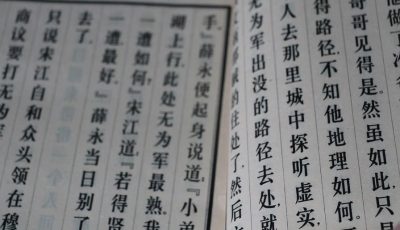 哥哥见得是。然虽如此,只是
得路径,不知他地理如何。
人去那里城中探听虚实,
无为军出没的路径去处,就
的住处了,然后
手。』薛永便起身说道:『小弟
湖上行,此处无为军最熟。我
一遭如何?』宋江道:『若得贤
一遭最好。』薛永当日别了
去了。
只说宋江自和众头领在穆
商议要打无为军